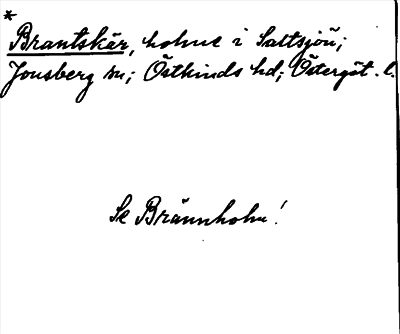 *
Brantskär, holme i Saltsjön;
Jonsberg sn; Östkinds hd; Östergöt. l.
Se Brännholm!